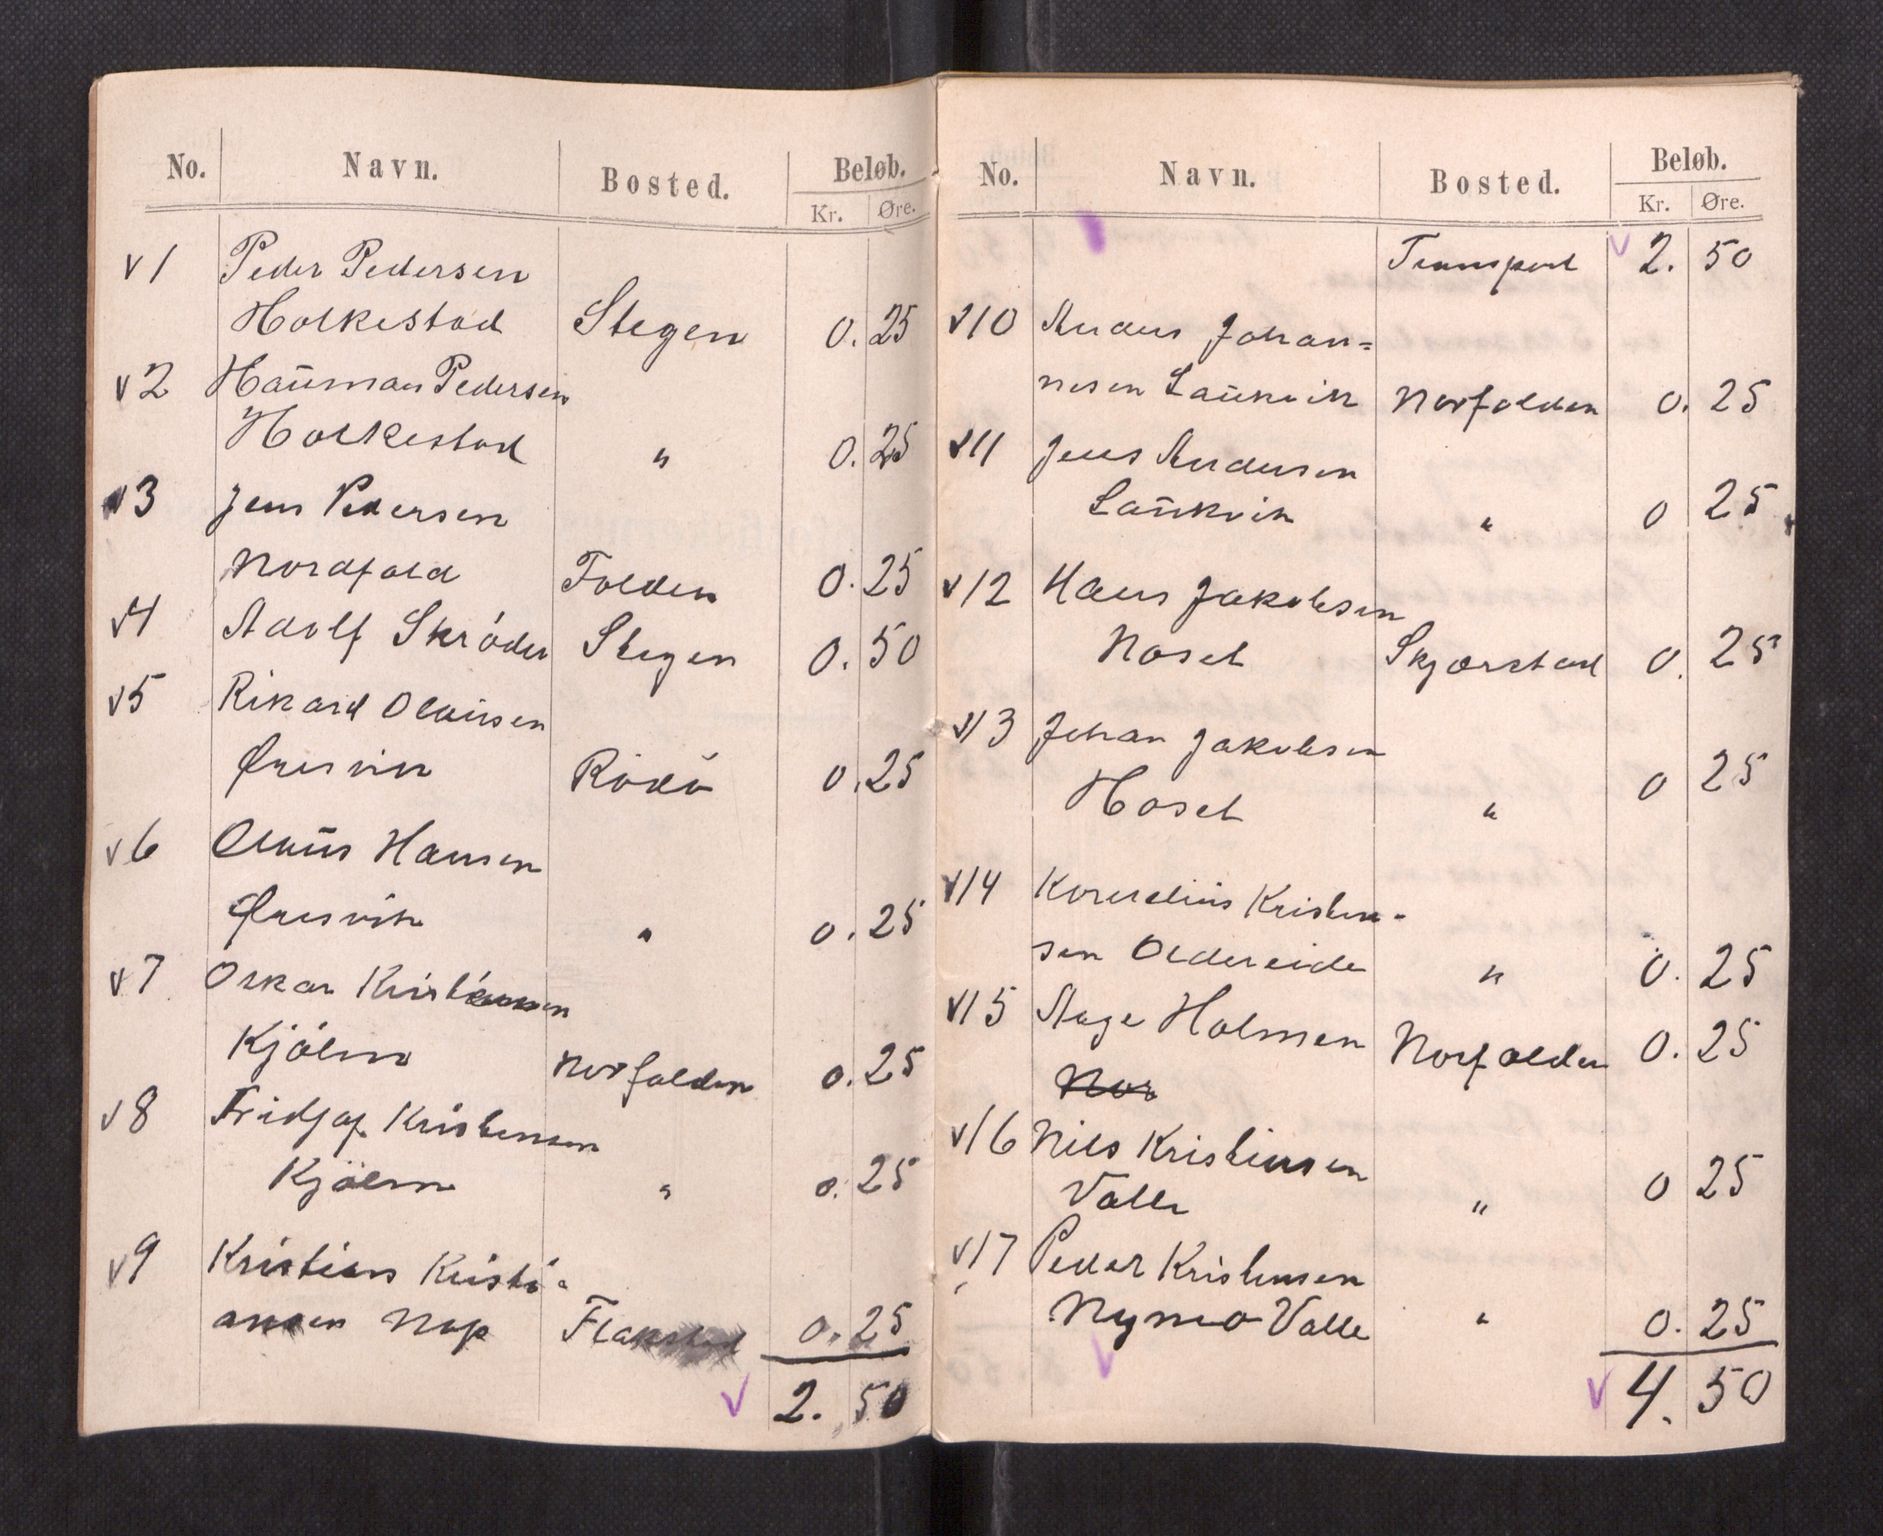 No. Navn. Bosted. Beløb.
Kr. Øre.
v 1 Peder Pedersen
Holkestad Stegen 0. 25
v 2 Haūman Pedersen
Holkestad " 0. 25
v 3 Jens Pedersen
Nordfold Folden 0. 25
v 4 Adolf Skröder Stegen 0. 50
v 5 Rikard Olausen
Øresvik Rödö 0. 25
v 6 Olaūs Hansen
Øresvik " 0. 25
v 7 Oskar Kristiansen
Kjölnn Norfolden 0. 25
v 8 Fridjof Kristensen
Kjölnn " 0. 25
v 9 Kristian Kristi-
ansen Nap Flakstad 0. 25
v 2. 50
No. Navn. Bosted. Beløb.
Kr. Øre.
Transport v 2. 50
v 10 Anders Johan=
nesen Laūkvik Norfolden 0. 25
v 11 Jens Andersen
Laūkvik " 0 25
v 12 Hans Jakobsen
Hoset Skjærstad 0. 25
v 13 Johan Jakobsen
Hoset " 0 25
v 14 Kornelius Kristen-
sen Oldereide " 0. 25
v 15 Aage Holmen Norfolden 0. 25
Nor
v 16 Nils Kristensen
Valle " 0 25
v 17 Peder Kristensen
Nymo Valle " 0. 25
v v 4. 50